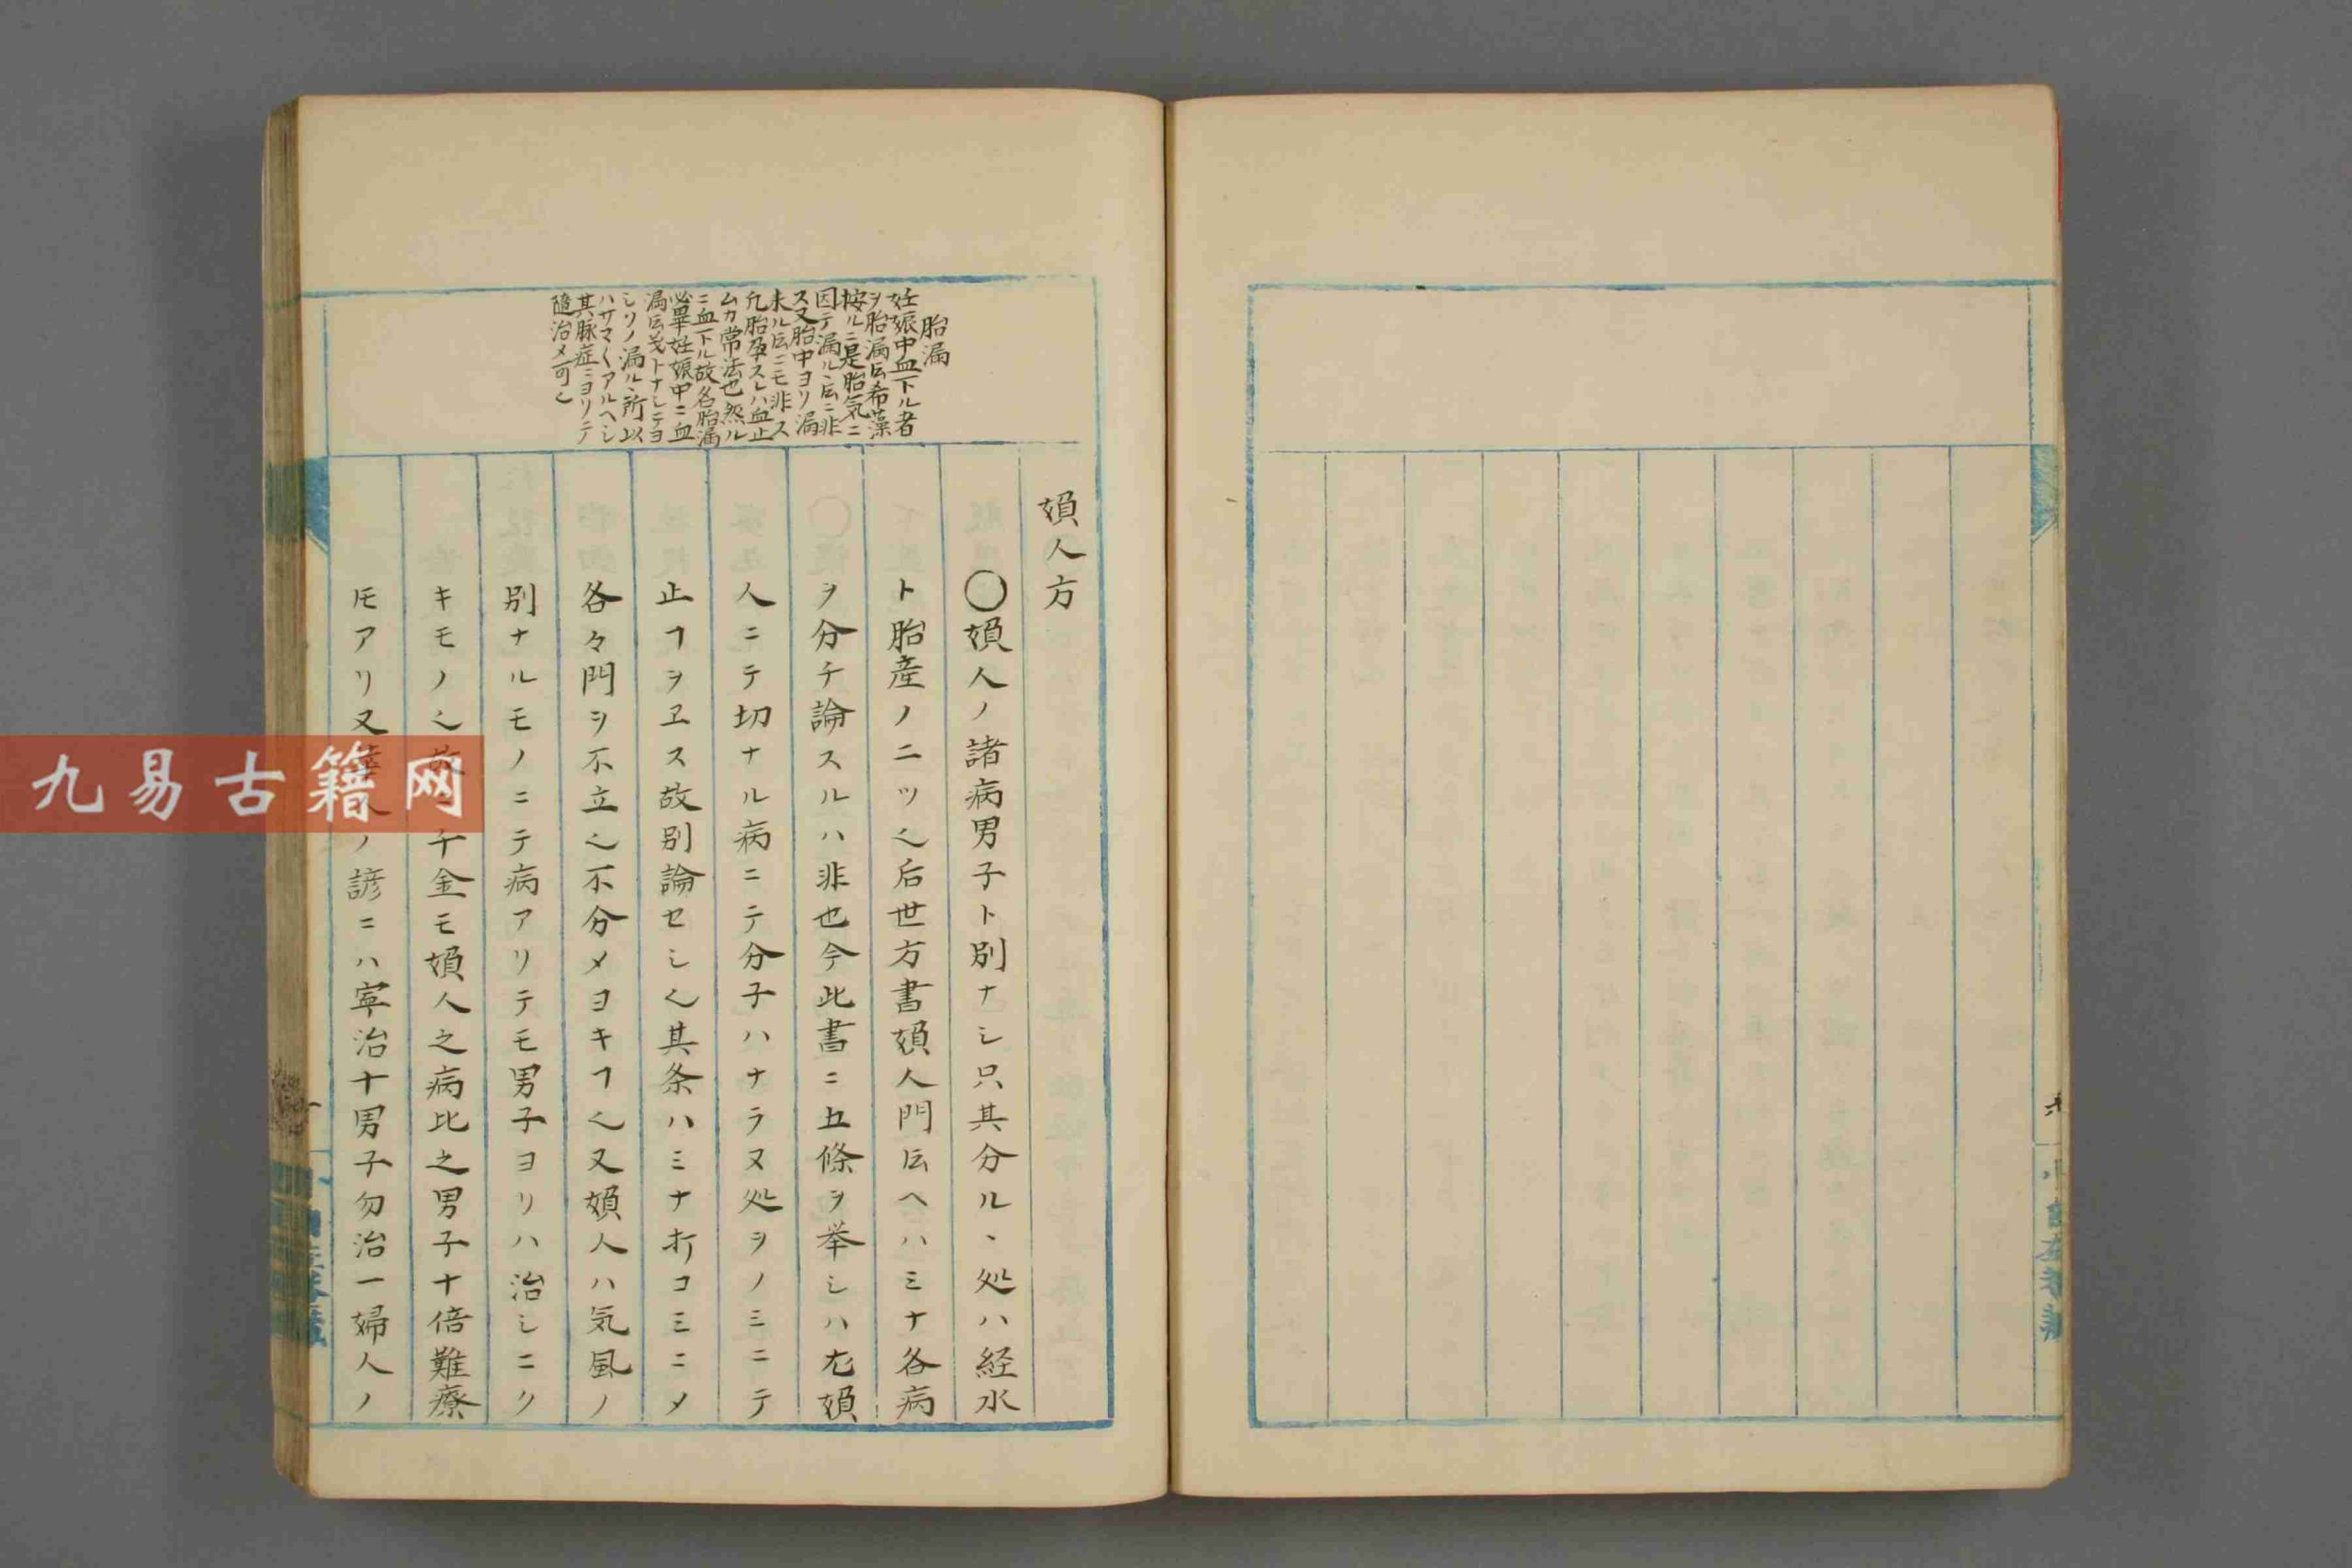 胎漏
妊娠中血下ル者
ヲ胎漏ト云希藻
按ルニ是胎気ニ
因テ漏ルヽ云ニ非
ス又胎中ヨリ漏
来ル云ニモ非ス
凢胎孕スレハ血止
ムカ常法也然ル
ニ血下ル故名胎漏
必畢妊娠中ニ血
漏云
シリノ漏ルヽ所以
ハサマ〱アルヘシ
其脉症ニヨリテ
随治メ可〆
媍人方
〇媍人ノ諸病男子ト別ナシ只其分ルヽ処ハ経水
ト胎産ノ二ツ〆后世方書媍人門云ヘハミナ各病
ヲ分チ論スルハ非也今此書ニ五條ヲ挙シハ尤媍
人ニテ切ナル病ニテ分子ハナラヌ処ヲノミニテ
止ヿヲヱス故別論セシ〆其条ハミナ打コミニメ
各々門ヲ不立〆不分メヨキヿ〆又媍人ハ気風ノ
別ナルモノニテ病アリテモ男子ヨリハ治シニク
キモノ〆故千金モ媍人之病比之男子十倍難療
モアリ又ノ諺ニハ寧治十男子勿治一婦人ノ
九易古籍网